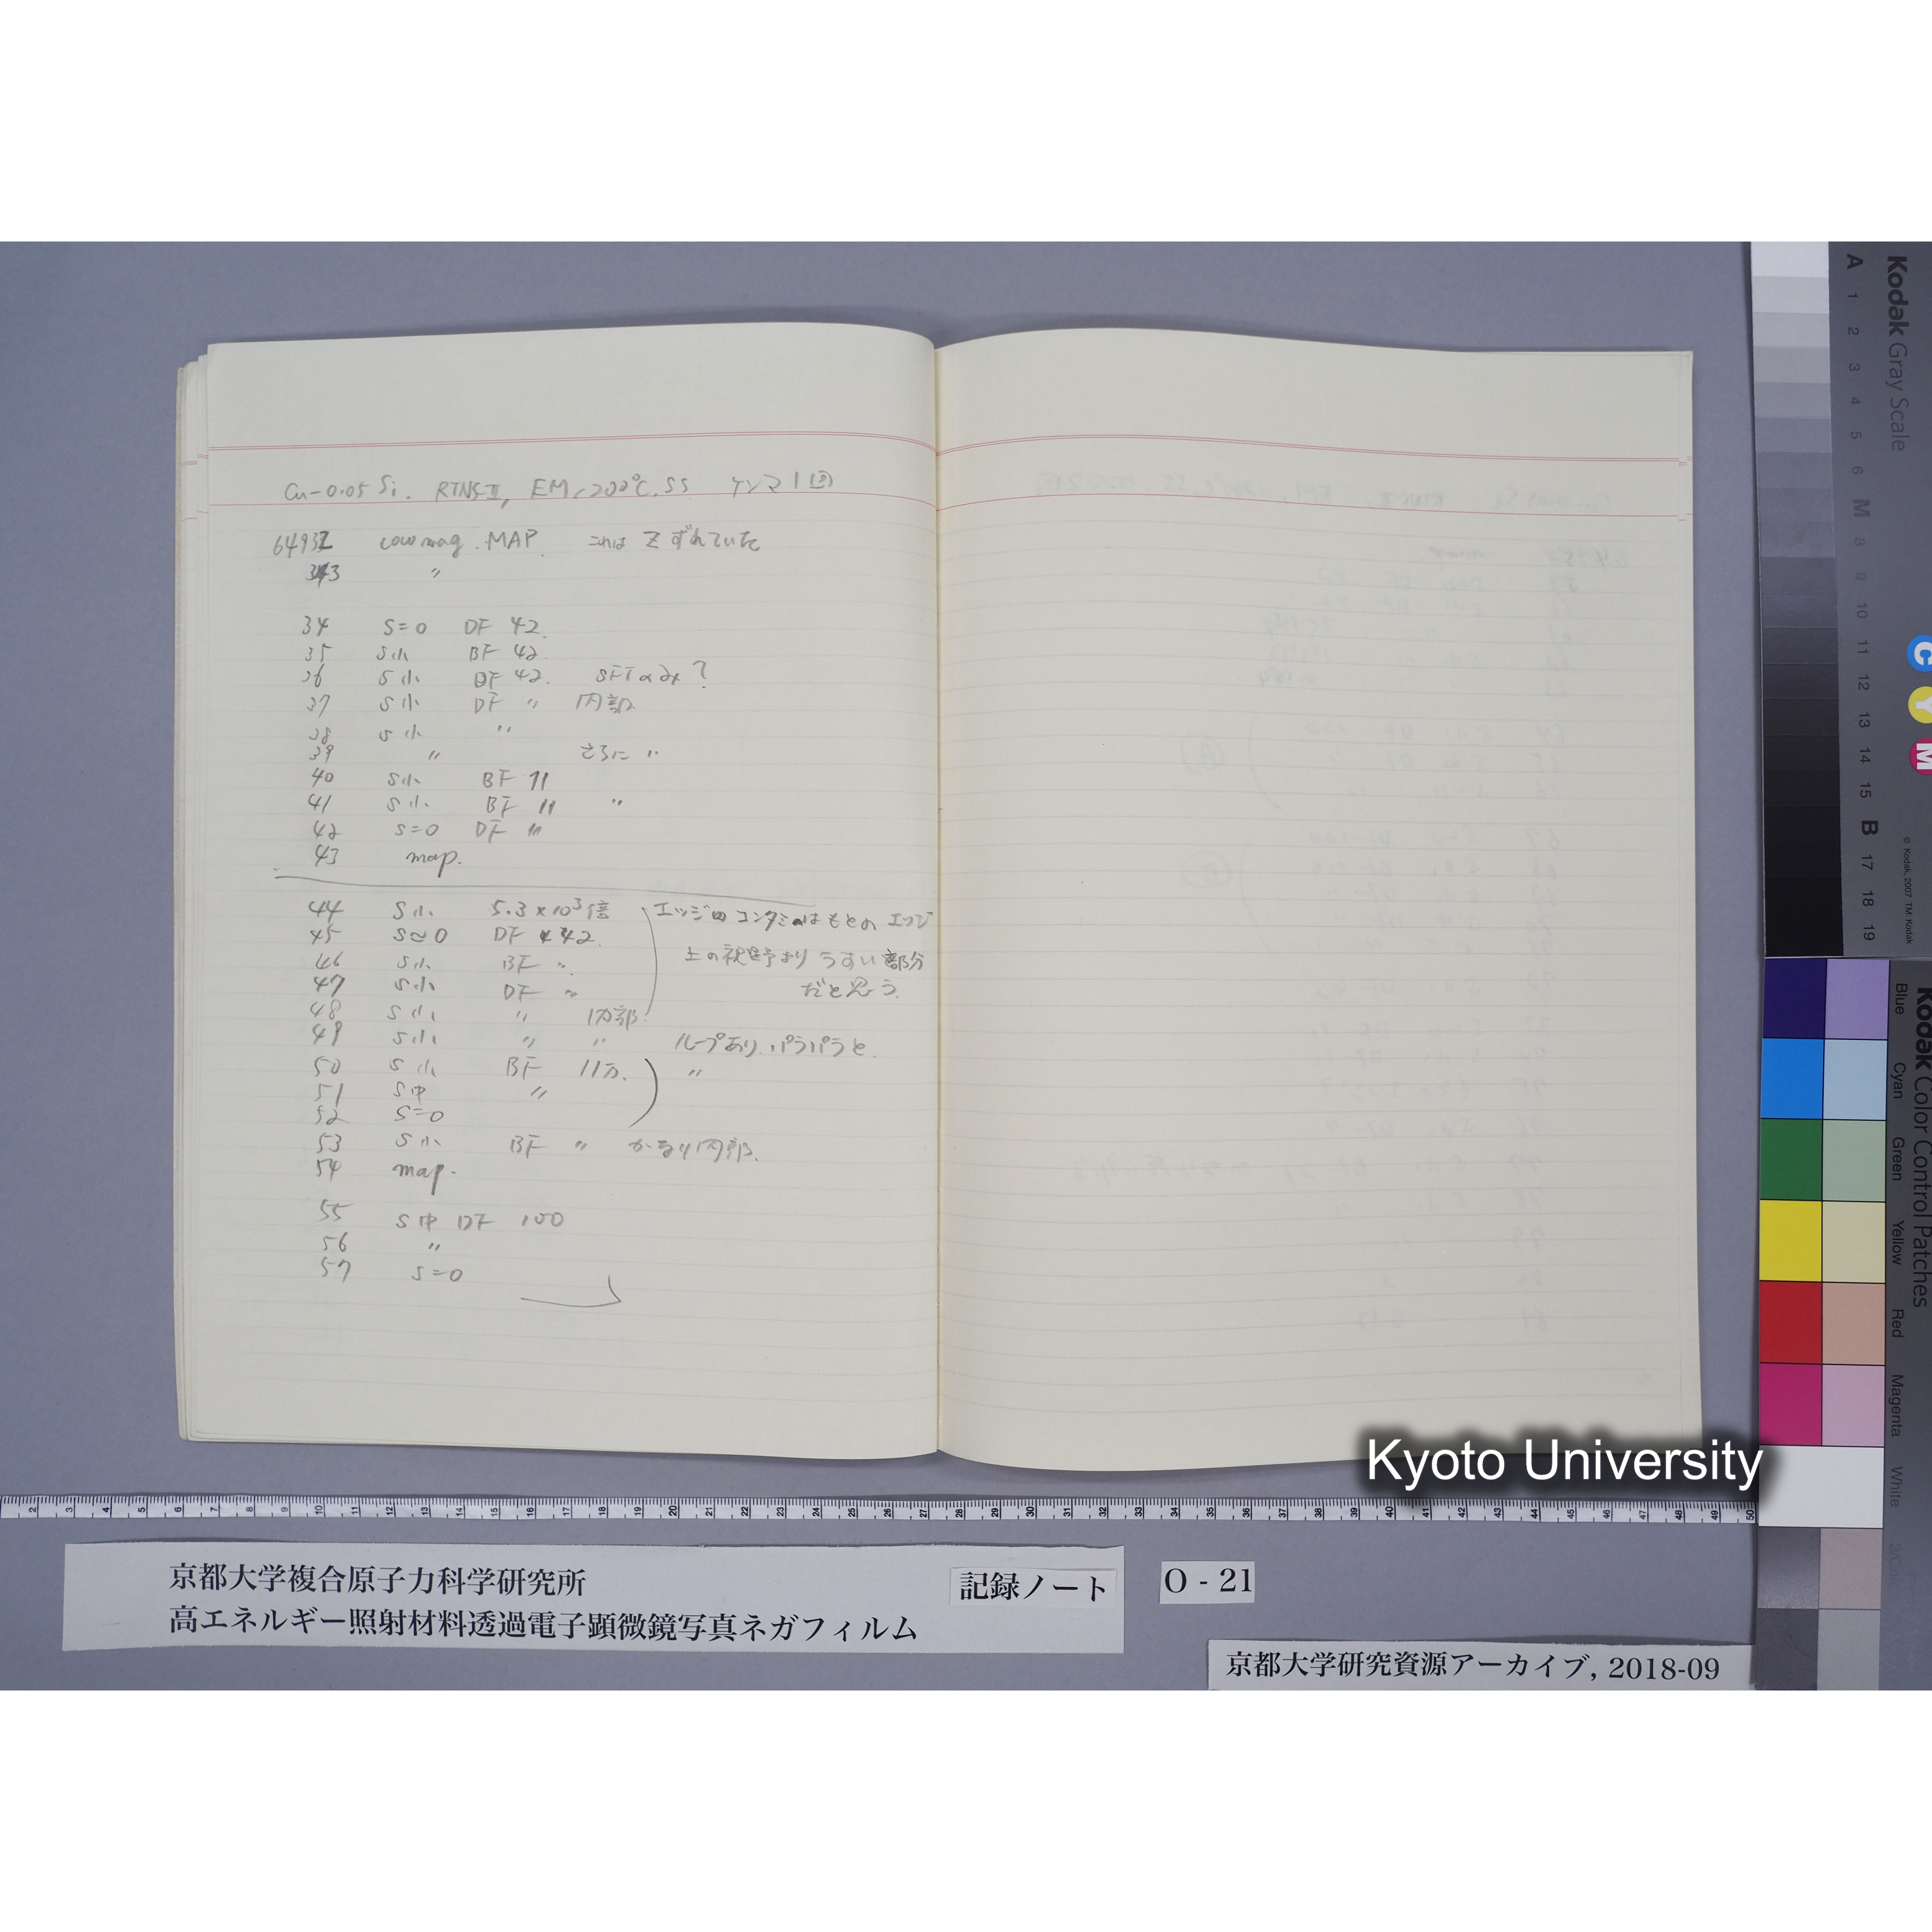 Cu-0.05 Si. RTNS-II, EM, 200℃, SS ケンマ1回
64932 Low mag. MAP. これは Z ずれていた
33 〃
34 S=0 DF 42.
35 S小 BF 42.
36 S小 DF 42. SFTのみ?
37 S小 DF 〃 内部
38 S小 〃
39 〃 さらに 〃
40 S小 BF 11
41 S小 BF 11 〃
42 S=0 DF 11
43 map.
44 S小 5.3×10³倍 エッジのコンタミはもとのエッジ
45 S≈0 DF 42.
上の視野よりうすい部分
46 S小 BF 〃
47 S小 DF 〃 だと思う.
48 S小 〃 内部.
49 S小 〃 〃 ループあり. パラパラと.
50 S小 BF 11万. 〃
51 S中 〃
52 S=0
53 S小 BF 〃 かなり内部.
54 map.
55 S中 DF 100
56 〃
57 S=0
Kyoto University
京都大学複合原子力科学研究所
高エネルギー照射材料透過電子顕微鏡写真ネガフィルム
記録ノート
O - 21
京都大学研究資源アーカイブ, 2018-09
Kodak Gray Scale
A 1 2 3 4 5 6 M 8 9 10 11 12 13 14 15 B 17 18 19
C Y M
© Kodak, 2007 TM: Kodak
Kodak Color Control Patches
Blue Cyan Green Yellow Red Magenta White
2 3 4 5 6 7 8 9 10 11 12 13 14 15 16 17 18 19 20 21 22 23 24 25 26 27 28 29 30 31 32 33 34 35 36 37 38 39 40 41 42 43 44 45 46 47 48 49 50